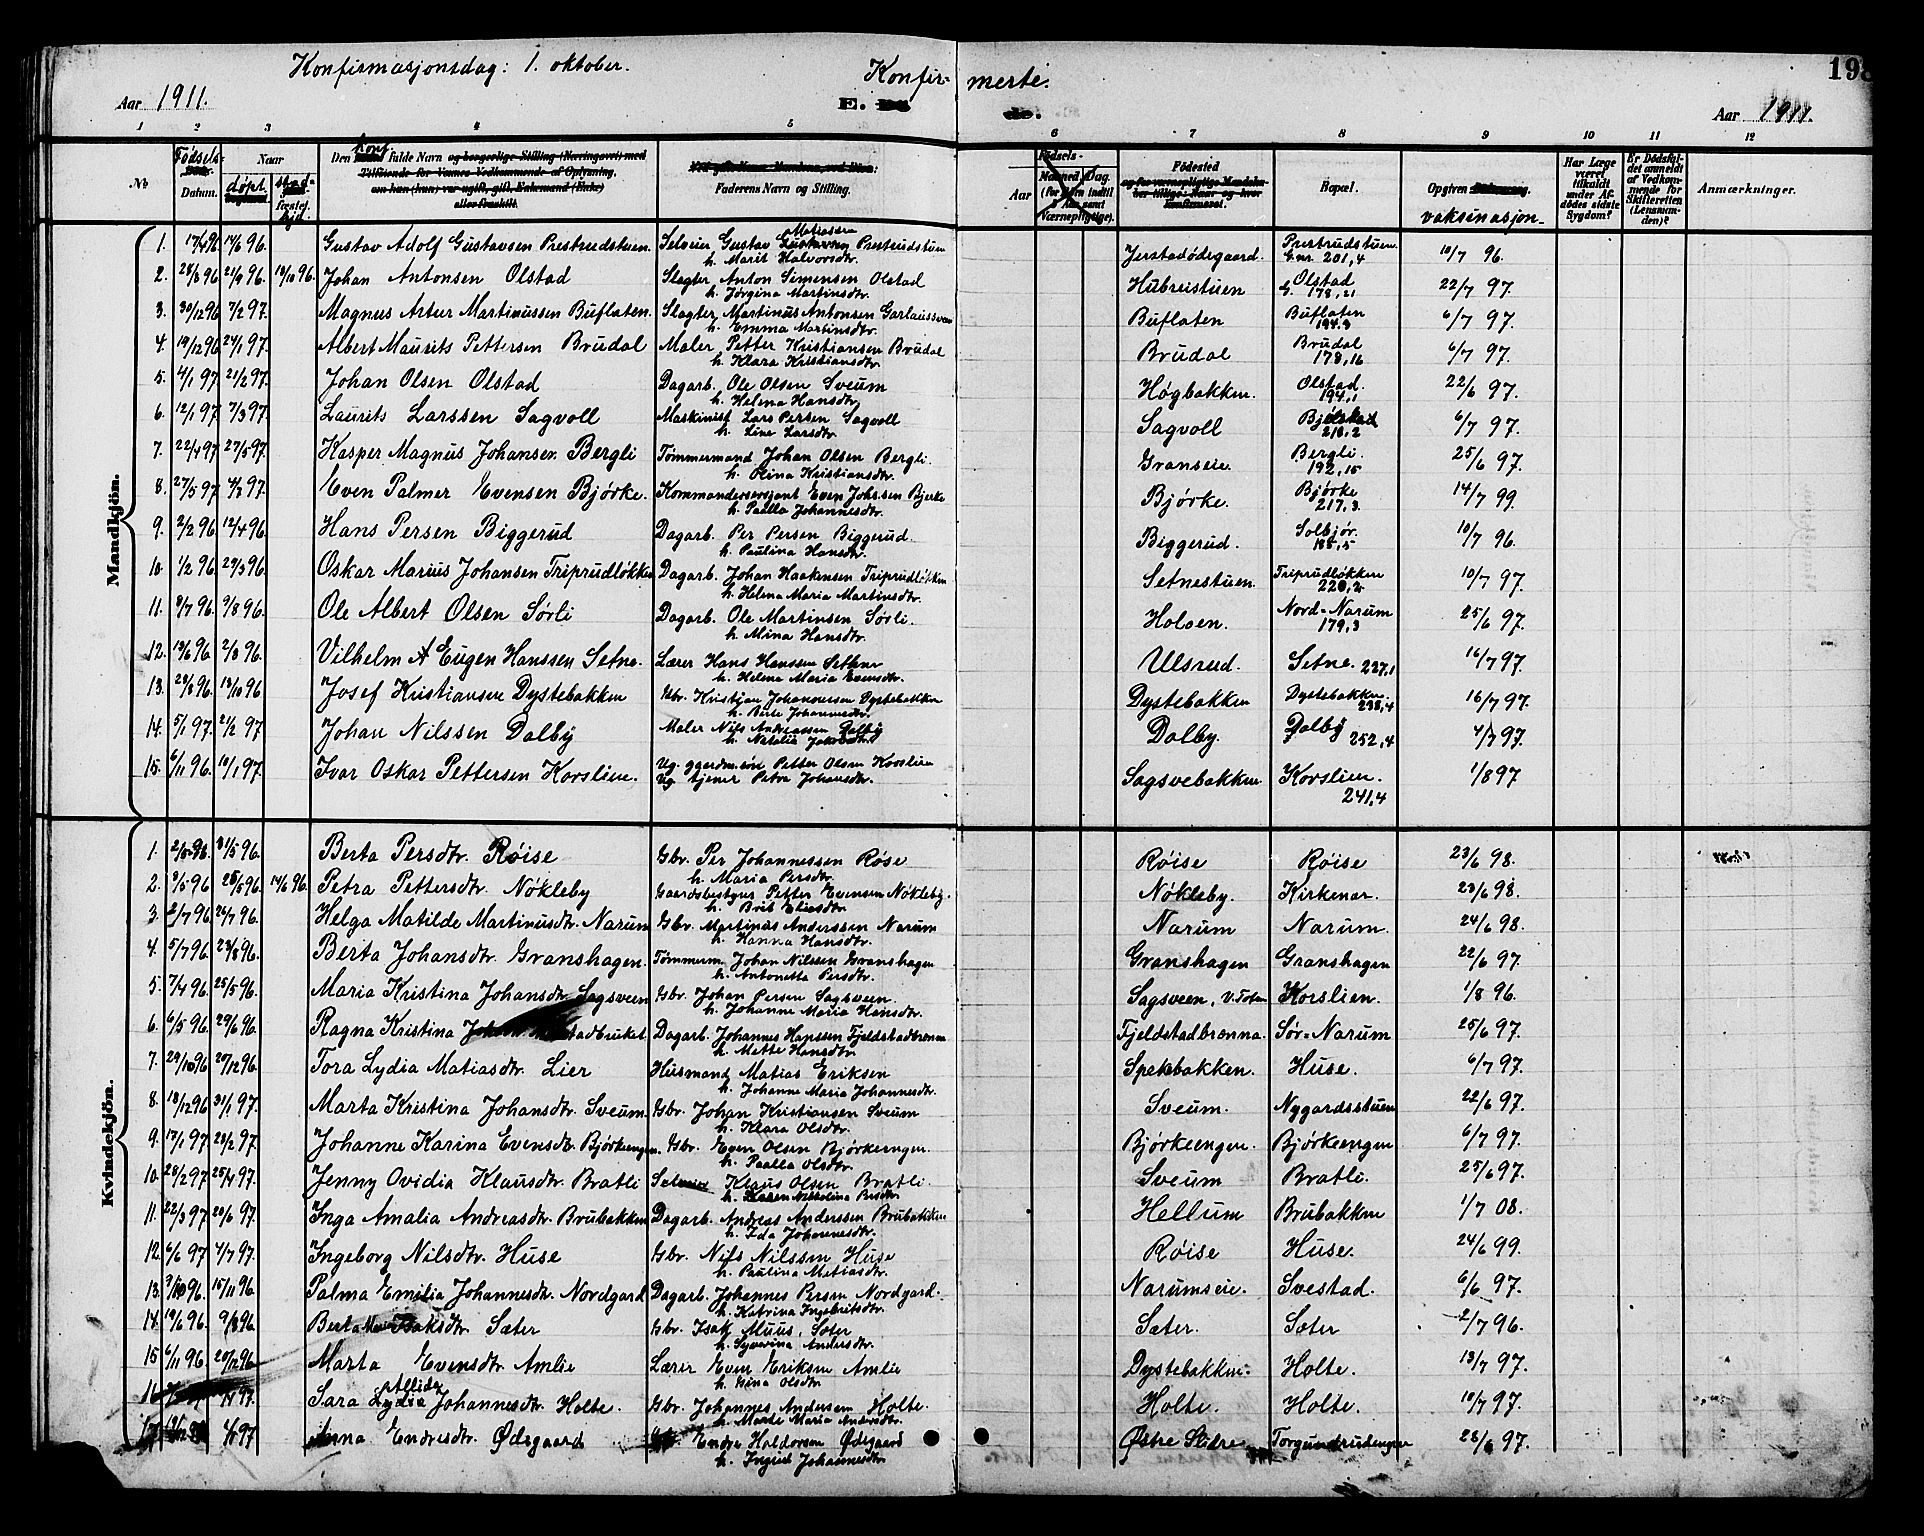 Konfirmasjonsdag: 1. oktober.
Konfir- merte.
198
Aar 1911.
E.
Aar 1911.
1 2 3 4 5 6 7 8 9 10 11 12
No Fødsels- Datum. Naar døpt Den fulde Navn Faderens Navn og Stilling. Aar Fødested Bopæl. Opgiven vaksinasjon Har Læge været tilkaldt under Afdødes sidste Sygdom? Er Dødsfaldet anmeldt af Vedkommende for Skifteretten (Lensmanden)? Anmærkninger.
Mandkjön.
1. 17/4 96 14/6 96. Gustav Adolf Gustavsen Prestrudstuen. Selveier Gustav Matiassen Prestrudstuen Jerstadødegaard. Prestrudstuen. 10/7 96.
h. Marit Halvorsdtr. G.nr. 201,4
2. 28/8 96 21/9 96. 18/10 96. Johan Antonsen Olstad Slagter Anton Simensen Olstad Hubreistuen Olstad 22/7 97.
h. Jørgina Martinsdtr. G. 178,21
3. 30/12 96 7/2 97. Magnus Artur Martinussen Buflaten. Slagter Martinus Antonsen Buflaten Buflaten 6/7 97.
h. Emma Martinsdtr. 194,3
4. 19/12 96 24/1 97. Albert Maurits Pettersen Brudal Maler Petter Kristiansen Brudal Brudal Brudal 6/7 97.
h. Klara Kristiansdtr. 178,16
5. 4/1 97. 21/2 97. Johan Olsen Olstad Dagarb. Ole Olsen Sveum Høgbakken. Olstad. 22/6 97.
h. Helena Hansdtr. 194,1
6. 12/1 97. 7/3 97. Laurits Larssen Sagvoll Maskinist Lars Persen Sagvoll Sagvoll 6/7 97.
h. Line Larsdtr. 218,2
7. 22/4 97 27/5 97. Kasper Magnus Johansen Bergli Tømmermand Johan Olsen Bergli. Granseie. Bergli. 25/6 97.
h. Olina Kristiansdtr. 192,15
8. 27/5 97 Even Palmer Evensen Bjørke. Kommandersersjant Even Johnsen Bjerke Bjørke. Bjørke 14/7 99.
h. Paalla Johannesdtr. 217,3.
9. 2/2 96. 12/4 96. Hans Persen Biggerud Dagarb. Per Persen Biggerud. Biggerud. Solbjør. 10/7 96.
h. Paulina Hansdtr.
10. 1/2 96. 29/3 96. Oskar Marius Johansen Triprudløkken Dagarb. Johan Haakensen Triprudløkken Setnestuen. Triprudløkken 10/7 97.
h. Helena Maria Martinsdtr.
11. 8/7 96. 9/8 96. Ole Albert Olsen Sørli Dagarb. Ole Martinsen Sørli. Holoen. Nord-Narum 25/6 97.
h. Mina Hansdtr. 179,3
12. 13/6 96. 2/8 96. Vilhelm Eugen Hanssen Setne. Lærer Hans Hanssen Setne Ulsrud. Setne. 227,1 16/7 97.
h. Helena Maria Evensdtr.
13. 23/8 96. 18/10 96 Josef Kristiansen Dystebakken Gbr. Kristian Johannessen Dystebakken Dystebakken Dystebakken. 16/7 97.
h. Berte Johannesdtr. 238,4
14. 5/1 97. 21/2 97 Johan Nilssen Dalby Maler Nils Andreassen Dalby Dalby. Dalby 252,4 4/7 97.
h. Natalia
15. 6/11 96. 10/1 97. Ivar Oskar Pettersen Korslien. Ug. ggardm.søn Petter Olsen Korslien Sagsvebakken Korslien. 1/8 97
Ug. tjener Petra Johansdtr. 241,4
Kvindekjön.
1. 31/5 96. Berta Persdtr. Røise Gbr. Per Johannessen Røse Røise Røise 23/6 98.
h. Maria Persdtr.
2. 9/5 96 25/5 96. 14/6 96. Petra Pettersdtr. Nøkleby Gaardsbestyrer Petter Evensen Nøkleby. Nøkleby. Kirkenær. 23/6 98.
h. Brit Eliasdtr.
3. 2/7 96. 26/7 96. Helga Matilde Martinusdtr. Narum Gbr. Martinus Anderssen Narum Narum Narum. 24/6 98.
h. Hanna Hansdtr.
4. 5/7 96. 23/8 96. Berta Johansdtr. Granshagen. Tømmerm. Johan Nilssen Granshagen Granshagen Granshagen 22/6 97.
h. Antonetta Persdtr.
5. 7/4 96. 25/5 96. Maria Kristina Johansdtr. Sagsveen Gbr. Johan Persen Sagsveen. Sagsveen, V. Toten Korslien. 1/8 96.
h. Johanne Maria Hansdtr.
6. 6/5 96. 29/6 96. Ragna Kristina Dagarb. Johannes Hanssen Fjeldstadbrenna Fjeldstadbrenna. Sør-Narum 25/6 97.
h. Mette Hansdtr.
7. 29/10 96 20/12 96. Tora Lydia Matiasdtr. Lier Husmand Matias Eriksen Spekebakken. Huse. 6/7 97.
h. Johanne Maria Johannesdtr.
8. 18/12 96 31/1 97. Marta Kristina Johansdtr. Sveum. Gbr. Johan Kristiansen Sveum Sveum. Nygardsstuen 22/6 97.
h. Klara Olsdtr.
9. 17/1 97 28/2 97. Johanne Karina Evensdtr. Bjørkeengen. Gbr. Even Olsen Bjørkeengen. Bjørkeengen. Bjørkeengen 6/7 97.
h. Paalla Olsdtr.
10. 28/2 97 25/4 97. Jenny Ovidia Klausdtr. Bratli Klaus Olsen Bratli. Sveum Bratli. 25/6 97.
h. Karen Nikolina
11. 22/3 97 20/6 97. Inga Amalia Andreasdtr. Brubakken Dagarb. Andreas Anderssen Brubakken Hellum Brubakken 1/7 08.
h. Ida Johannesdtr.
12. 6/6 97 4/7 97. Ingeborg Nilsdtr. Huse Gbr. Nils Nilssen Huse Røise Huse. 24/6 99.
h. Paulina Matiasdtr.
13. 9/10 96. 15/11 96. Palma Emilia Johannesdtr. Nordgard Dagarb. Johannes Persen Nordgard. Narumseie. Svestad. 6/6 97.
h. Katrina Ingebritsdtr.
14. 19/6 96. 9/8 96. Berta Isaksdtr. Sæter Gbr. Isak Muus, Sæter Sæter. Sæter 2/7 96.
h. Syverina Andersdtr.
15 6/11 96. 20/12 96. Marta Evensdtr. Amlie Lærer Even Eriksen Amlie Dystebakken. Holte. 13/7 97.
h. Gina Olsdtr.
16 Sara Lydia Johannesdtr. Holte. Gbr. Johannes Andersen Holte. Holte. Holte. 10/7 97.
h. Marte Maria Andersdtr.
17. Anna Endresdtr. Ødegaard Endre Haldorsen Ødegaard Østre Slidre 28/6 97.
h. Ingrid Johannesdtr.